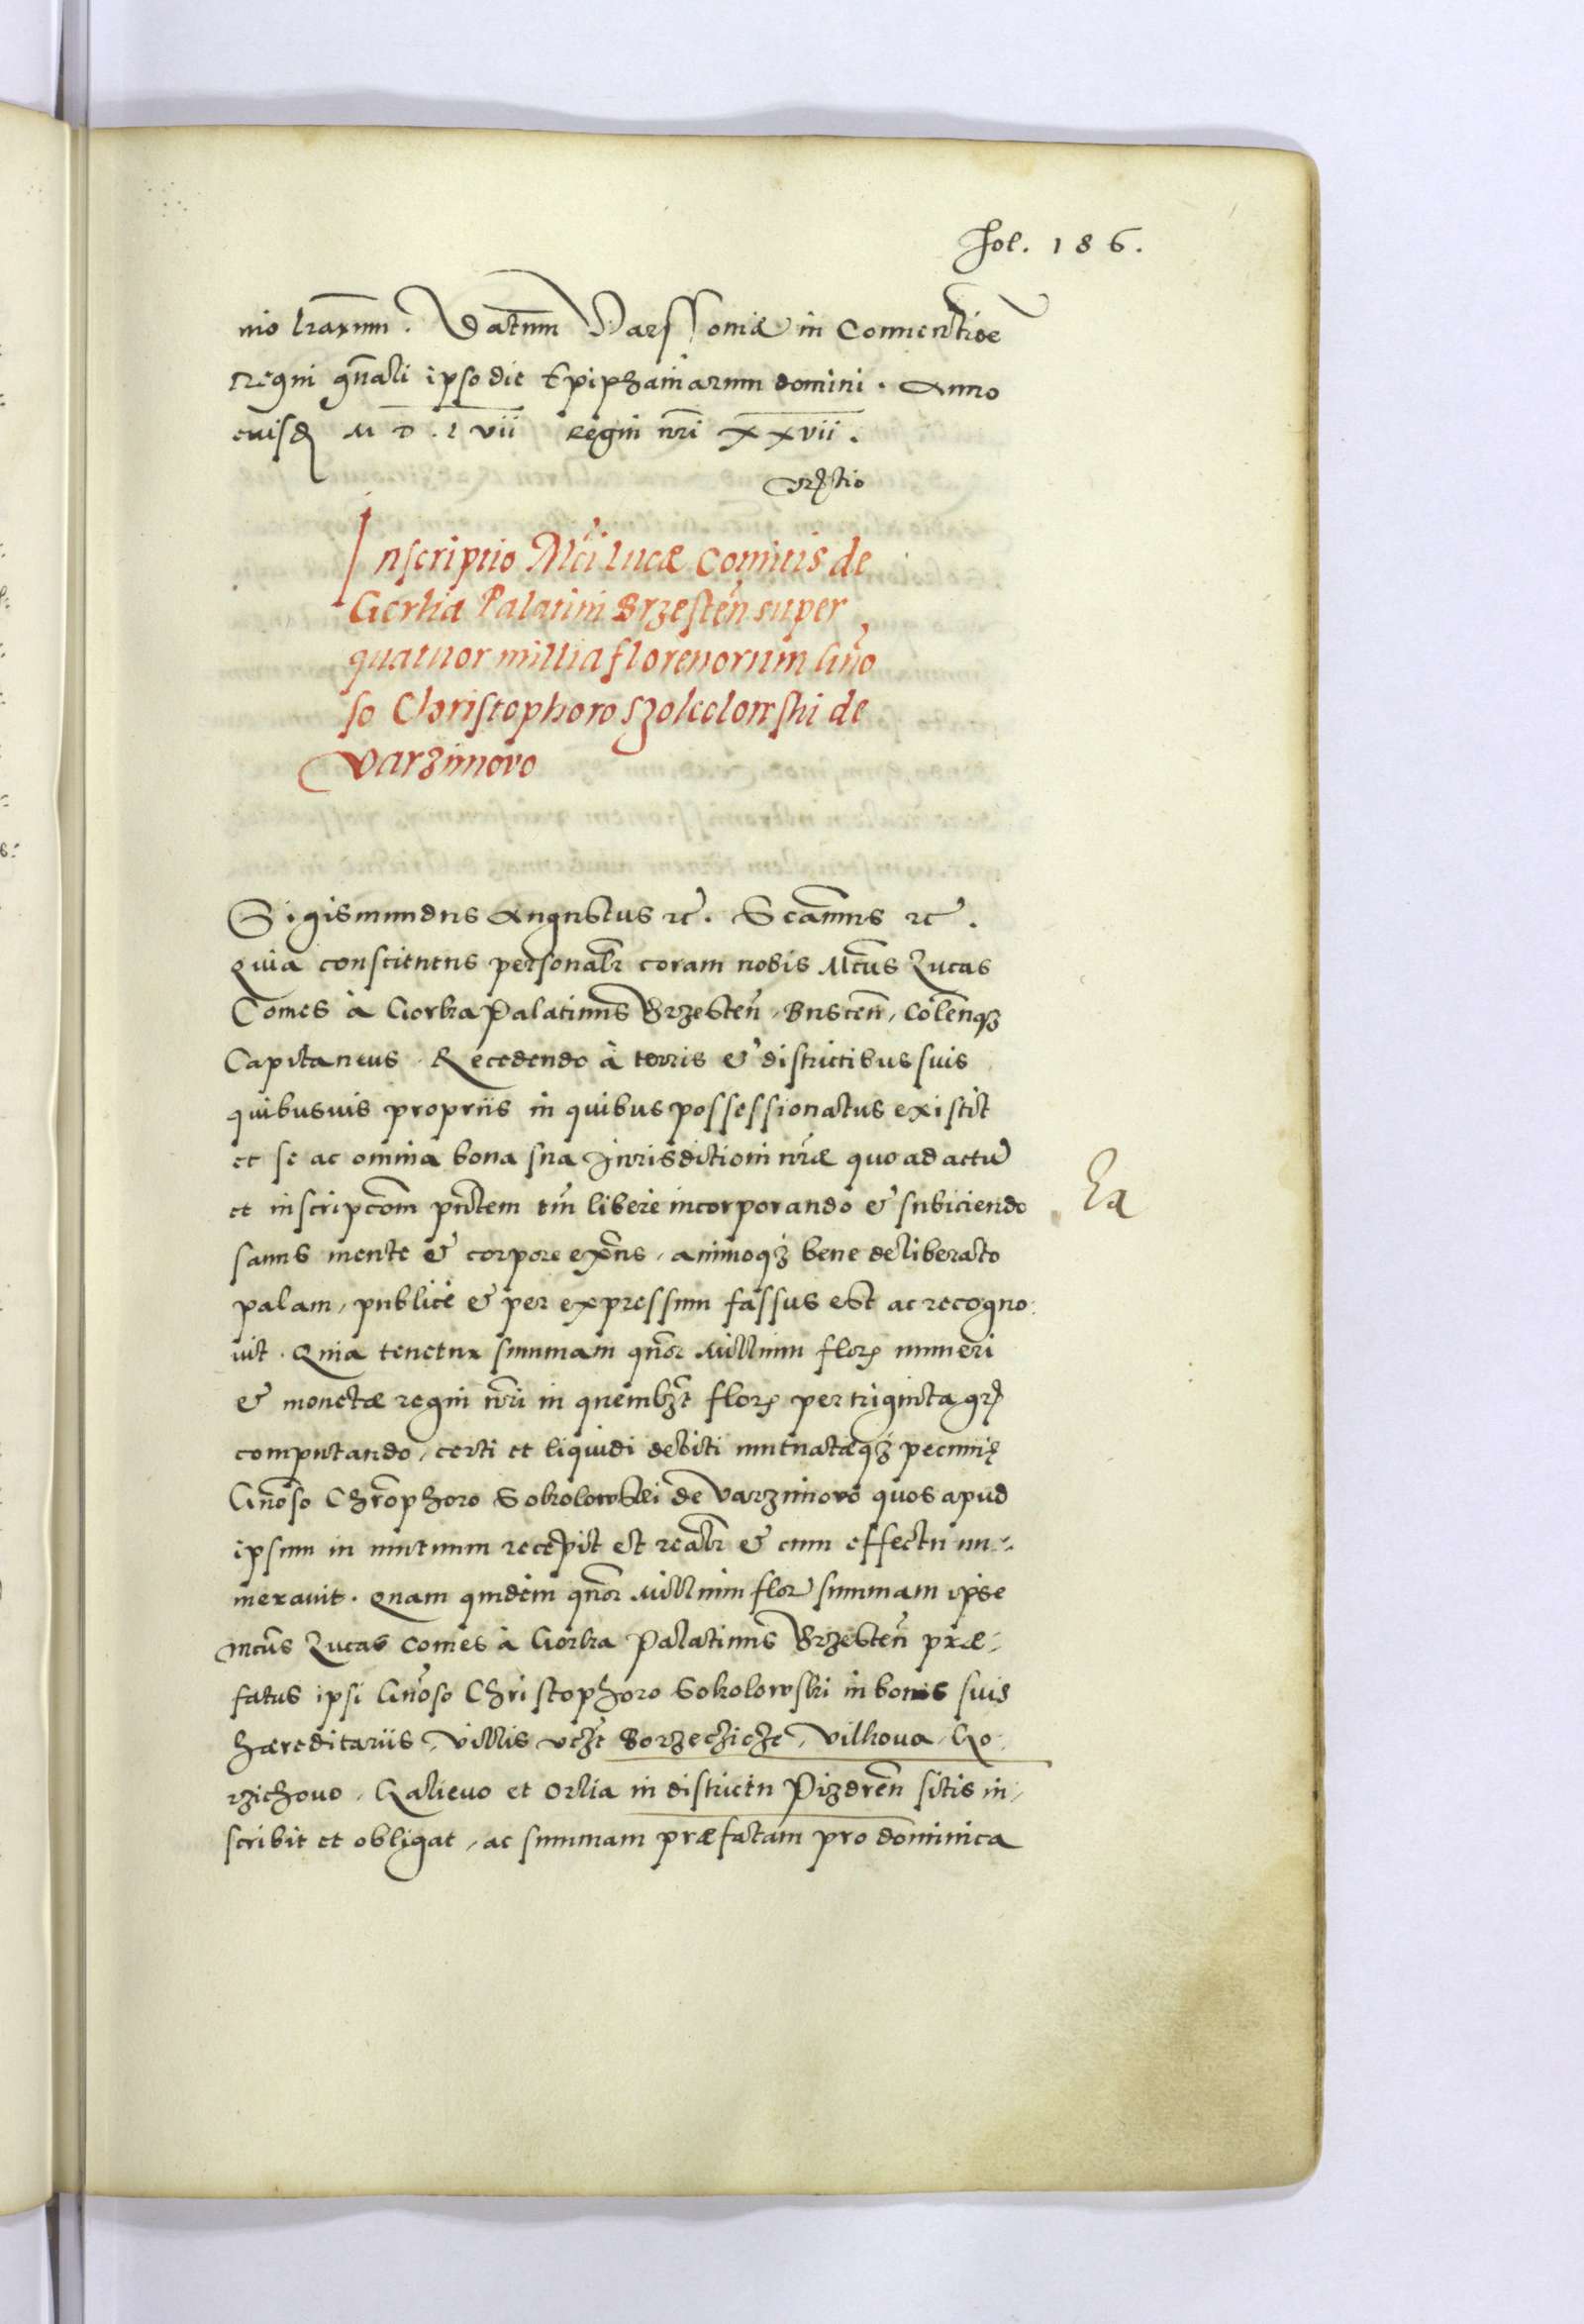 Fol. 186.
nio lrarum. Datum Varssoviæ in Conuentione
regni gn̄ali ipso die Epiphaniarum domini. Anno
euisd M D. L vii Regni nr̄i xxvii.
Inscriptio Mci Lucæ Comitis de
Gorka Palatini Brzesten̄ super
quatuor millia florenorum Gn̄o
so Christophoro Szokolowski de
Varzimovo
Sigismundus Augustus etc. Scamus etc.
Quia conscientens personalr coram nobis Mcus Lucas
Comes à Gorka Palatinus Brzesten̄, Buscen̄, Colen̄q3
Capitaneus. Recedendo à terris et districtibus suis
quibusuis propriis in quibus possessionatus existit
et se ac omnia bona sua Jurisdictioni nr̄æ quo ad actū
et inscripcōm pn̄tem tm̄ libere incorporando et subiciendo
sanus mente et corpore exn̄s, animoq3 bene deliberato
palam, publice et per expressum fassus est ac recogno
uit. Quia tenetur summam qn̄or Millium flor numeri
et monetæ regni nr̄i in quemlzt flor per triginta gr
computando, certi et liquidi debiti mutuatæq3 pecunię
Gn̄oso Chrōphoro Sokolowski de Varzimovo quos apud
ipsum in mutuum recepit et realr et cum effectu nu-
merauit. Quam quidem qn̄or Millium flor summam ipse
mcus Lucas Comes à Gorka Palatinus Brzesten̄ præ-
fatus ipsi Gn̄oso Christophoro Sokolowski in bonis suis
hæreditariis, villis vczt Borzechicze, Vilkoua, Go
rzichouo, Galieuo et Orlia in districtu Pizdren̄ sitis in-
scribit et obligat, ac summam præfatam pro dominica